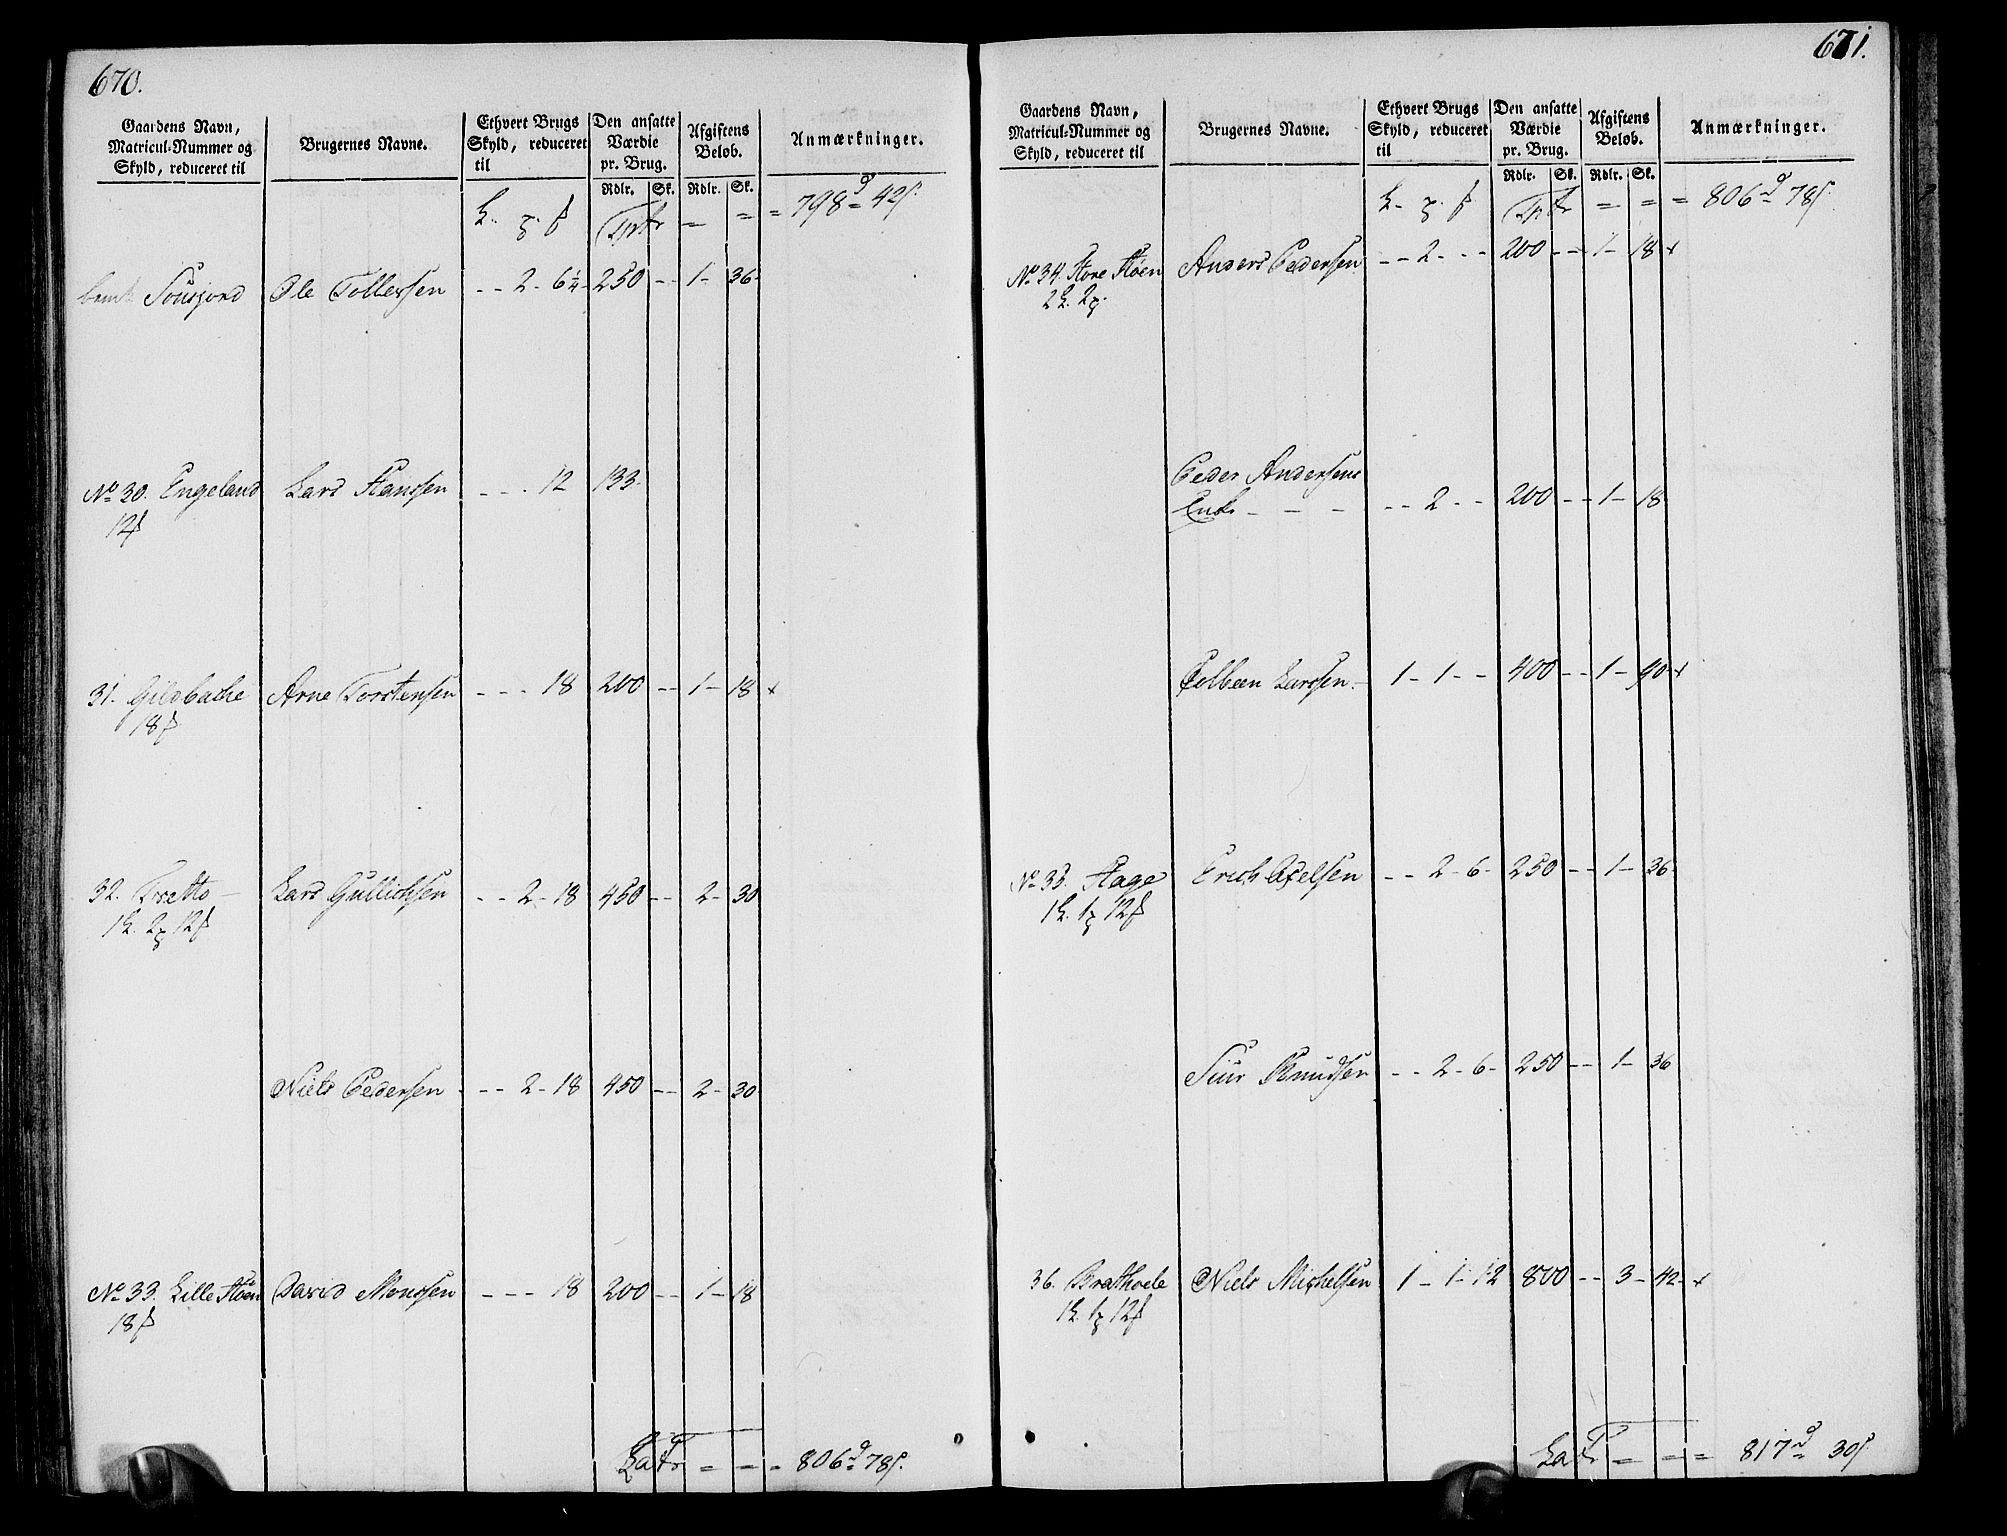 670.
Gaardens Navn, Matricul-Nummer og Skyld, reduceret til
Brugernes Navne.
Ethvert Brugs Skyld, reduceret til
Den ansatte Værdie pr. Brug.
Afgiftens Beløb.
Anmærkninger.
Rdlr. Sk. Rdlr. Sk.
Tprtr = = = 798 d = 42 s
Ole Tollefsen - - 2 - 6¼ - 250 - - 1 - 36 -
No 30. Engeland Lars Hanssen - - - 12 133.
12
31. Gildbakke Arne Torstensen - - - 18 200 - - 1 - 18 +
18
32. Trætto - Lars Gullichsen - - 2 - 18 450 - - 2 - 30
1 2 12
Niels Pedersen - - 2 - 18 450 - - 2 - 30
No 33. Lille Støen David Monssen - - - 18 200 - - 1 - 18
18
LaTr = = = 806 d = 78 s.
671.
Gaardens Navn, Matricul-Nummer og Skyld, reduceret til
Brugernes Navne.
Ethvert Brugs Skyld, reduceret til
Den ansatte Værdie pr. Brug.
Afgiftens Beløb.
Anmærkninger.
Rdlr. Sk. Rdlr. Sk.
Tprtr = = = 806 d = 78 s.
No 34. Store Støen Anders Pedersen - - 2 - - - 200 - - 1 - 18 +
2 2
Peder Andersens
Enke - - - - - 2 - - 200 - - 1 - 18
Colbeen Larssen - 1 - 1 - - 400 - - 1 - 90 +
No 35. Hage Erich Axelsen - - 2 - 6 - 250 - - 1 - 36
1 1 12
Siur Knudsen - - 2 - 6 - 250 - - 1 - 36
36. Brathole Niels Michelsen 1 - 1 - 12 800 - - 3 - 42 - +
1 1 12
LaTr = = = 817 d = 30 s